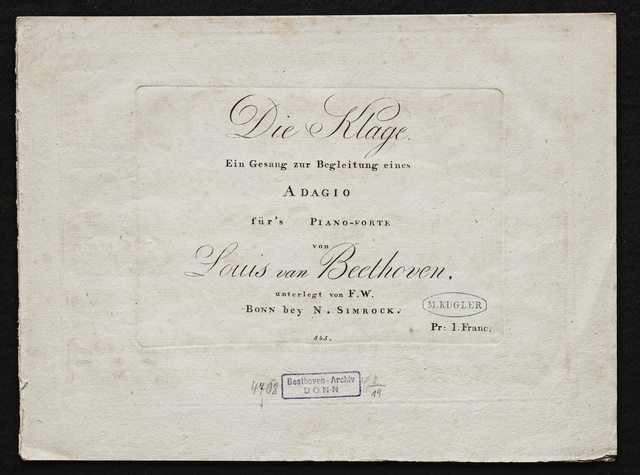 Die Klage.
Ein Gesang zur Begleitung eines
ADAGIO
für's PIANO-FORTE
von
Louis van Beethoven.
unterlegt von F.W.
BONN bey N. SIMROCK.
M. KUGLER
Pr: 1. Franc.
545.
4408
Beethoven-Archiv
BONN
19